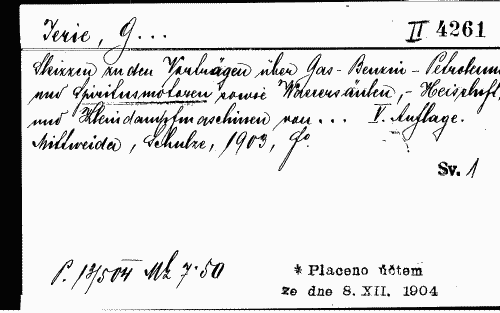 Jerie, G... II 4261
Skizzen zu den Vorträgen über Gas- Benzin- Petroleum
und Spiritusmotoren sowie Wassersäulen,- Heissluft,
und Kleindampfmaschinen von... V. Auflage.
Mittweida, Schulze, 1903, fo.
Sv. 1
P. 12/504 Mk 7·50
* Placeno účtem
ze dne 8. XII. 1904